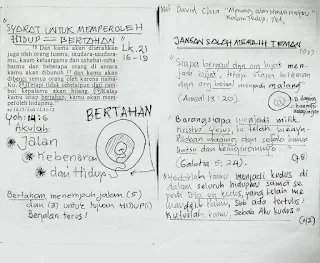 SYARAT UNTUK MEMPEROLEH
HIDUP = BERTAHAN
16 Dan kamu akan diserahkan
juga oleh orang tuamu, saudara-saudara-
mu, kaum keluargamu dan sahabat-saha-
batmu dan beberapa orang di antara
kamu akan dibunuh 17 dan kamu akan
dibenci semua orang oleh karena nama-
Ku. 18 Tetapi tidak sehelai pun dari ram-
but kepalamu akan hilang. 19 Kalau
kamu tetap bertahan, kamu akan mem-
peroleh hidupmu.
Lk. 21
16 - 19
Yoh: 14:6
Akulah:
BERTAHAN
Jalan
Kebenaran
dan Hidup
Bertahan menempuh jalan (5)
dan (3) untuk tujuan HIDUP(1)
Berjalan terus!
David Chua
JANGAN SALAH MEMILIH TEMAN
"Siapa bergaul dengan org bijak men-
jadi bijak, tetapi siapa berteman
dgn org bebal menjadi malang"
(Amsal 13:20)
Barangsiapa menjadi milik
Kristus Yesus, ia telah menya-
libkan daging dgn segala hawa
nafsu dan keinginannya"
(Galatia 5; 24).
kamu menjadi kudus di
dalam seluruh hidupmu sama se-
perti Dia yg kudus, yang telah me-
manggil kamu, Sebab ada tertulis:
Kuduslah kamu, Sebab Aku kudus"